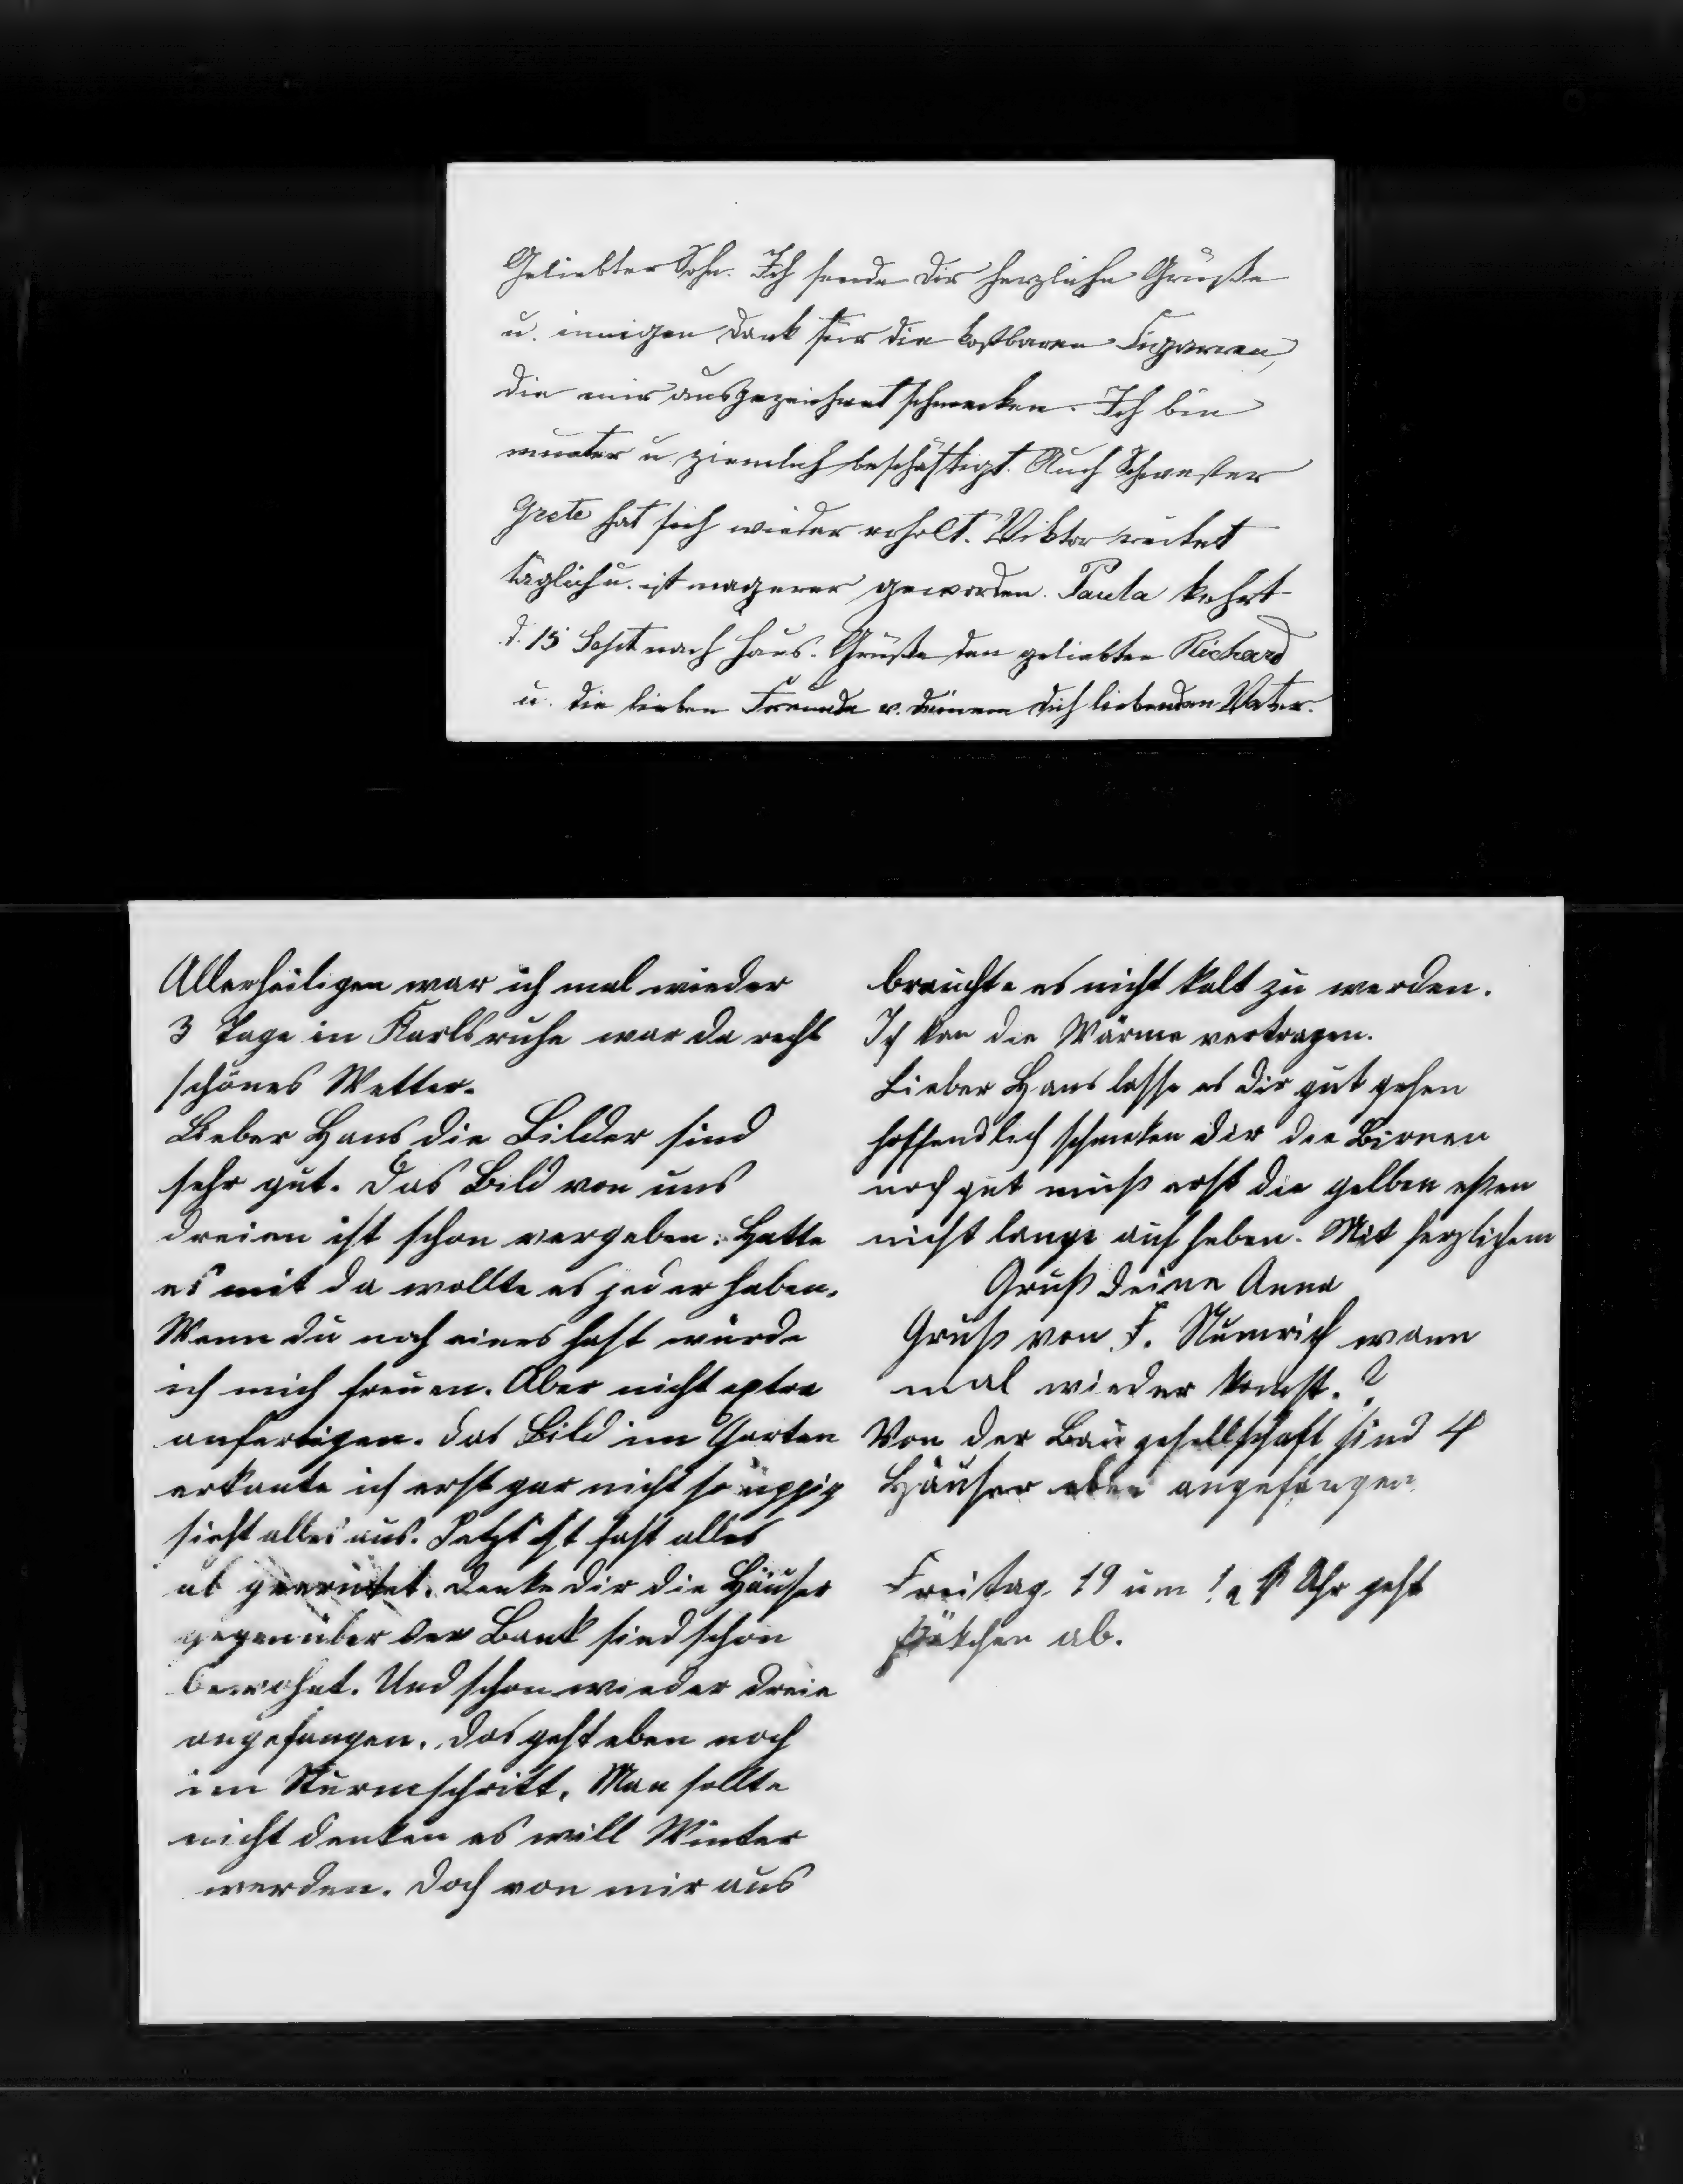 Geliebter Sohn. Ich sende dir herzliche Grüße
u. innigen Dank für die kostbaren Cigarren,
die mir ausgezeichnet schmecken. Ich bin
munter u. ziemlich beschäftigt. Auch Schwester
Grete hat sich wieder erholt. Viktor reitet
täglich u. ist magerer geworden. Paula kehrt
d. 15 Sept nach Haus. Grüße den geliebten Richard
u. die lieben Freunde v. deinem dich liebenden Vater.
Allerheiligen war ich mal wieder
3 Tage in Karlsruhe war da recht
schönes Wetter.
Lieber Hans die Bilder sind
sehr gut. Das Bild von uns
dreien ist schon vergeben. Hatte
es mit da wollte es jeder haben.
Wenn du noch eines hast würde
ich mich freuen. Aber nicht extra
anfertigen. Das Bild im Garten
erkante ich erst gar nicht so üppig
sieht alles aus. Jetzt ist fast alles
ab geerntet. Denke dir die Häuser
gegenüber der Bank sind schon
bewohnt. Und schon wieder dreie
angefangen. Das geht eben noch
im Sturmschritt. Man sollte
nicht denken es will Winter
werden. Doch von mir aus
brauchte es nicht kalt zu werden.
Ich kan die Wärme vertragen.
Lieber Hans lasse es dir gut gehen
hoffendlich schmeken dir die Birnen
noch gut muß erst die gelben eßen
nicht lange auf heben. Mit herzlichem
Gruß deine Anna
Gruß von F. wann
mal wieder komst.?
Von der Baugesellschaft sind 4
Häuser eben angefangen
Freitag 19 um Uhr geht
Päkchen ab.